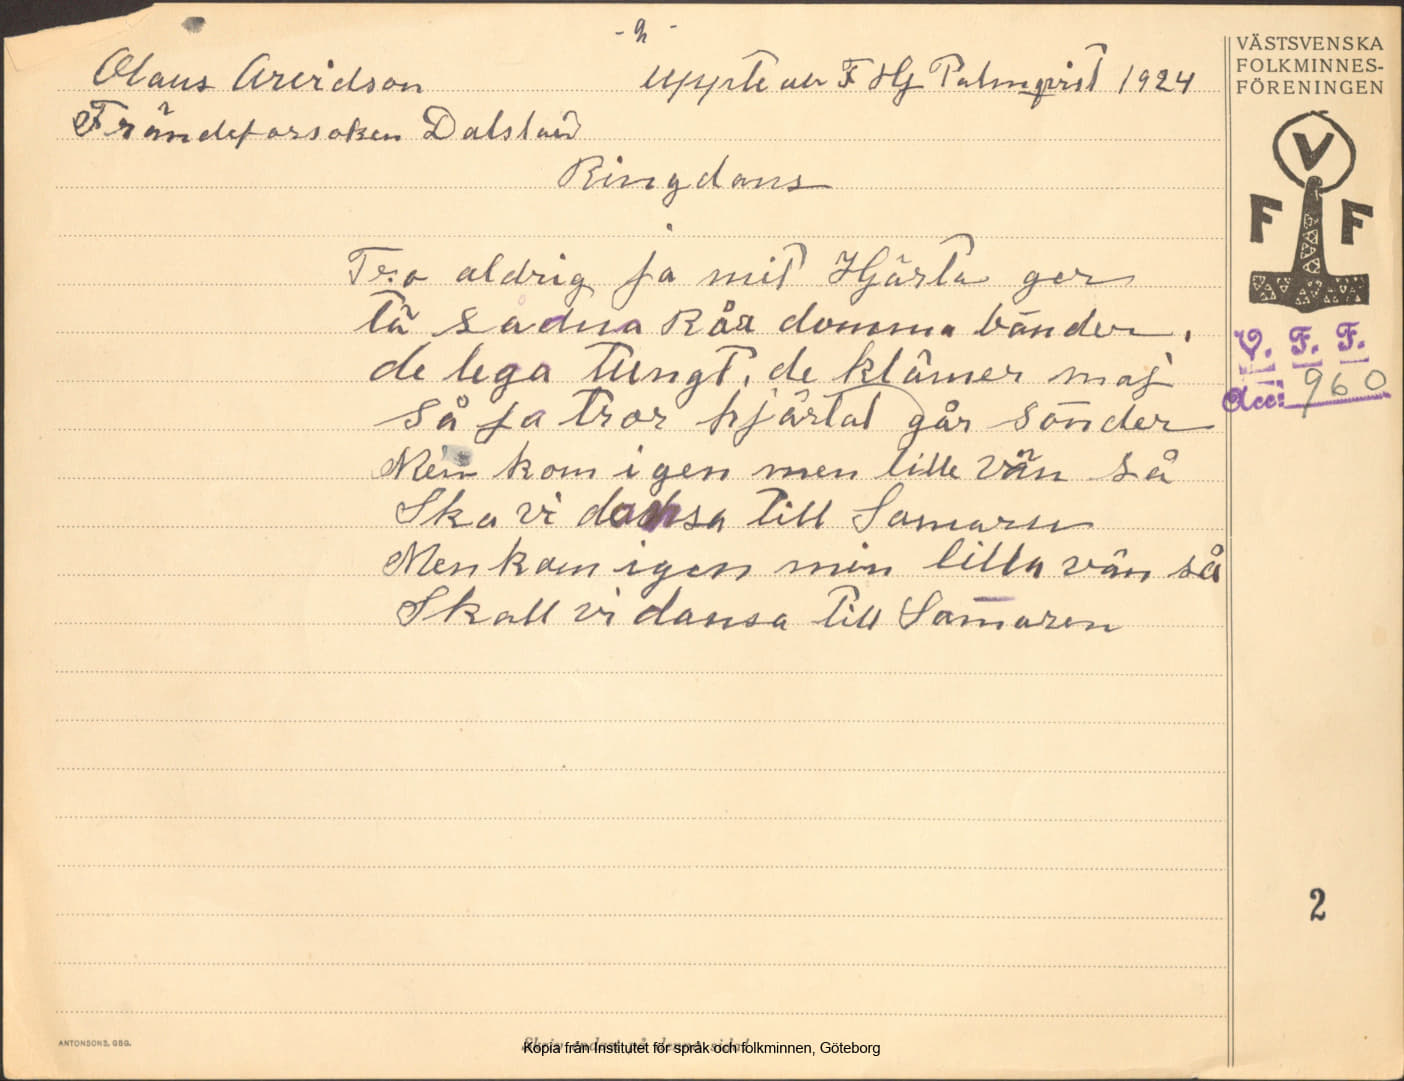 - 2 -
Olaus Arvidson Uppte av F Hj Palmqvist 1924
Frändeforsoken Dalsland
Ringdans
Tro aldrig ja mit Hjärta ger
tä sadna Råa domma bänder,
de lega tungt, de klämer maj
så ja tror hjärtat går sönder
Men kom igen men lille vän så
Ska vi dansa till Samaren
Men kom igen min lilla vän så
Skall vi dansa till Sommaren
VÄSTSVENSKA
FOLKMINNES-
FÖRENINGEN
V
F F
V. F. F.
Acc: 960
2
ANTONSONS, GBG.
Skriv endast på denna sida!
Kopia från Institutet för språk och folkminnen, Göteborg